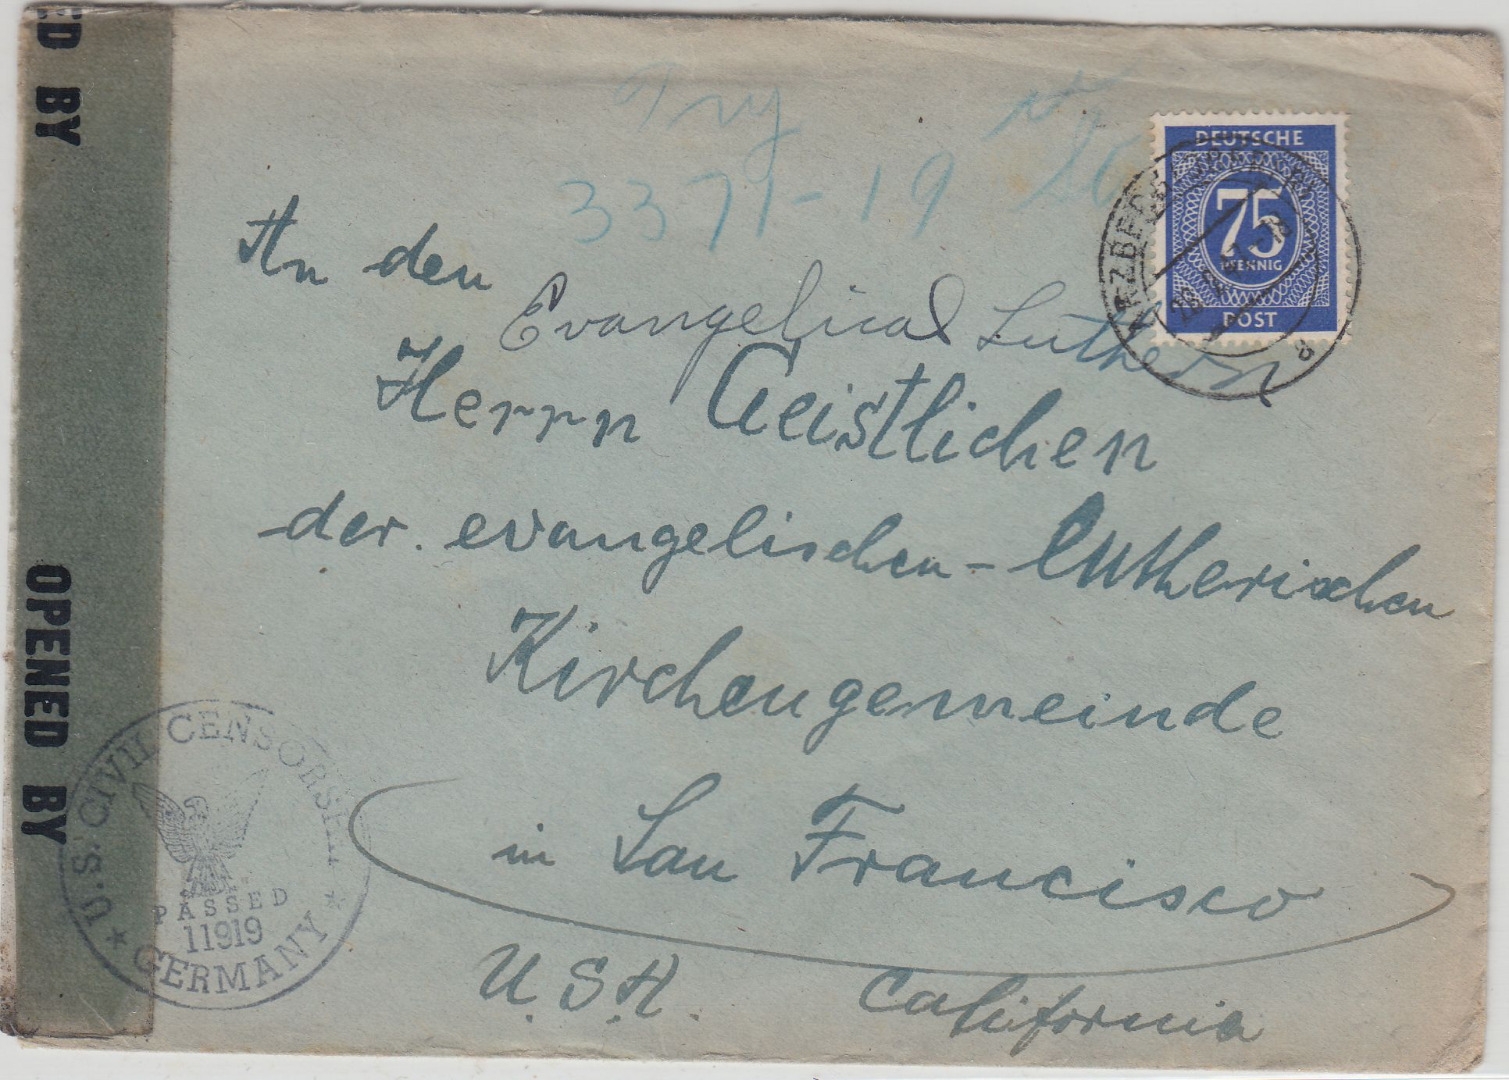 ED BY
OPENED BY
Try
3371-19
DEUTSCHE
75
PFENNIG
POST
8
An den
Evangelical Luthern
Herrn Geistlichen
der evangelischen-lutherischen
Kirchengemeinde
in San Francisco
U.S.A. California
U.S. CIVIL CENSORSHIP
PASSED
11919
GERMANY